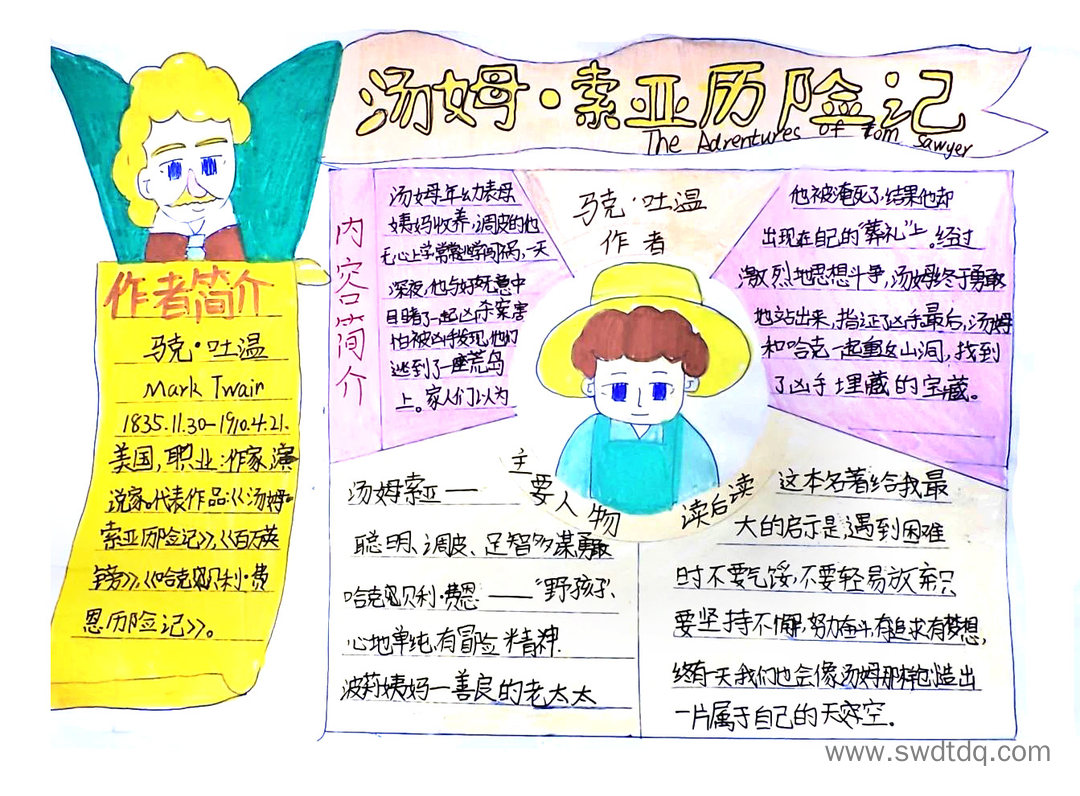 汤姆·索亚历险记
The Adrentures of tom sawyer
作者简介
马克·吐温
Mark Twain
1835.11.30-1910.4.21.
美国,职业:作家,演
说家。代表作品:《汤姆·
索亚历险记》,《百万英
镑》,《哈克贝利·费
恩历险记》。
内容简介
汤姆年幼丧母
姨妈收养,调皮的他
无心上学常常逃学闯祸,一天
深夜,他与好友意中
目睹了一起凶杀案害
怕被凶手发现,他们
逃到了一座荒岛
上。家人们以为
马克·吐温
作者
他被淹死了,结果他却
出现在自己的“葬礼”上。经过
激烈地思想斗争,汤姆终于勇敢
地站出来,指证了凶手。最后,汤姆
和哈克一起重返山洞,找到
了凶手埋藏的宝藏。
主要人物
汤姆索亚——
聪明、调皮、足智多谋勇敢
哈克贝利·费恩——“野孩子”、
心地单纯,有冒险精神.
波莉姨妈—善良的老太太
读后读
这本名著给我最
大的启示是,遇到困难
时不要气馁,不要轻易放弃
要坚持不懈,努力奋斗,有追求有梦想,
终有一天我们也会像汤姆那样创造出
一片属于自己的天空.
www.swdtdq.com